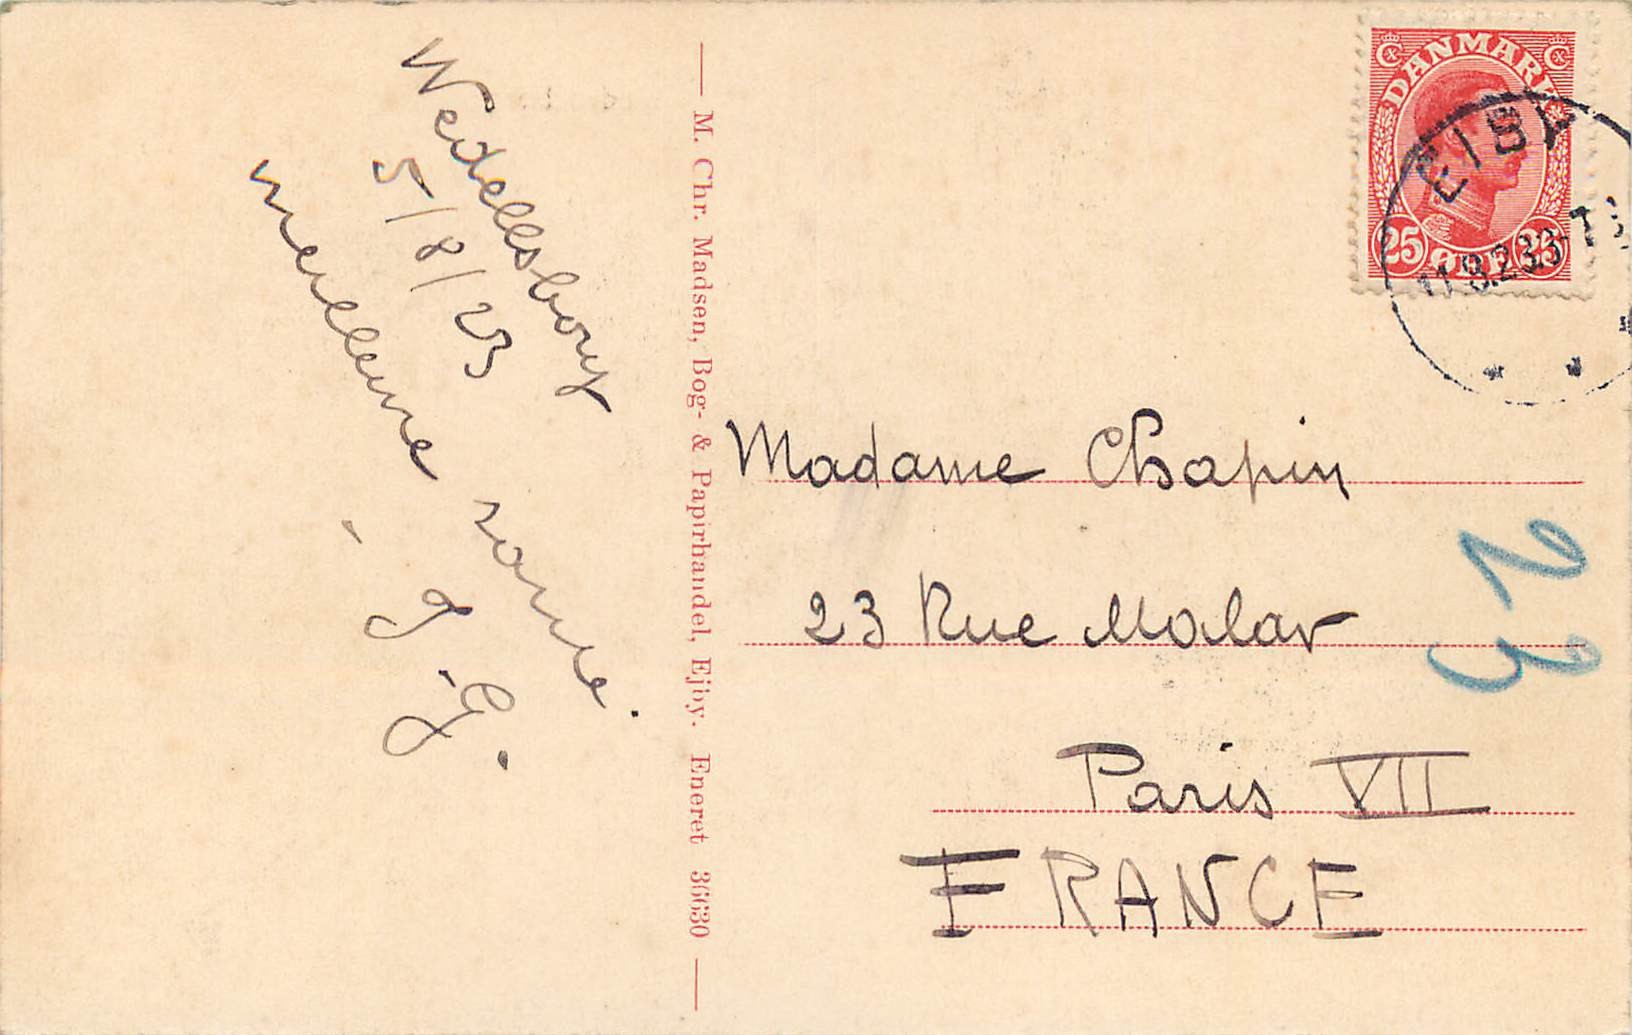 Wedellsborg
5/8/23
meilleure santé.
J. G.
M. Chr. Madsen, Bog- & Papirhandel, Ejby. Eneret 36630
DANMARK
25 ØRE
EJBY
Madame Chapin
23 Rue Malar
Paris VII
FRANCE
23